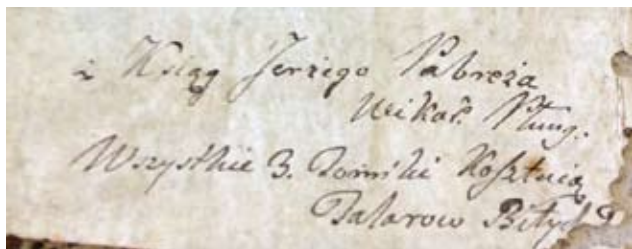 z Ksiąg Jerzego Pabreża
Wikar. Pług.
Wszystkie 3. Tomiki Kosztuią
Talarow Bitych 9